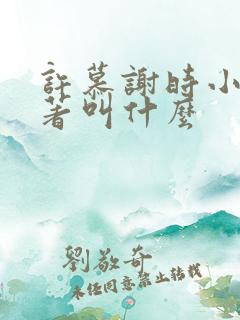 許慕謝時小
著叫什麼
劉敬奇
未经同意禁止转载